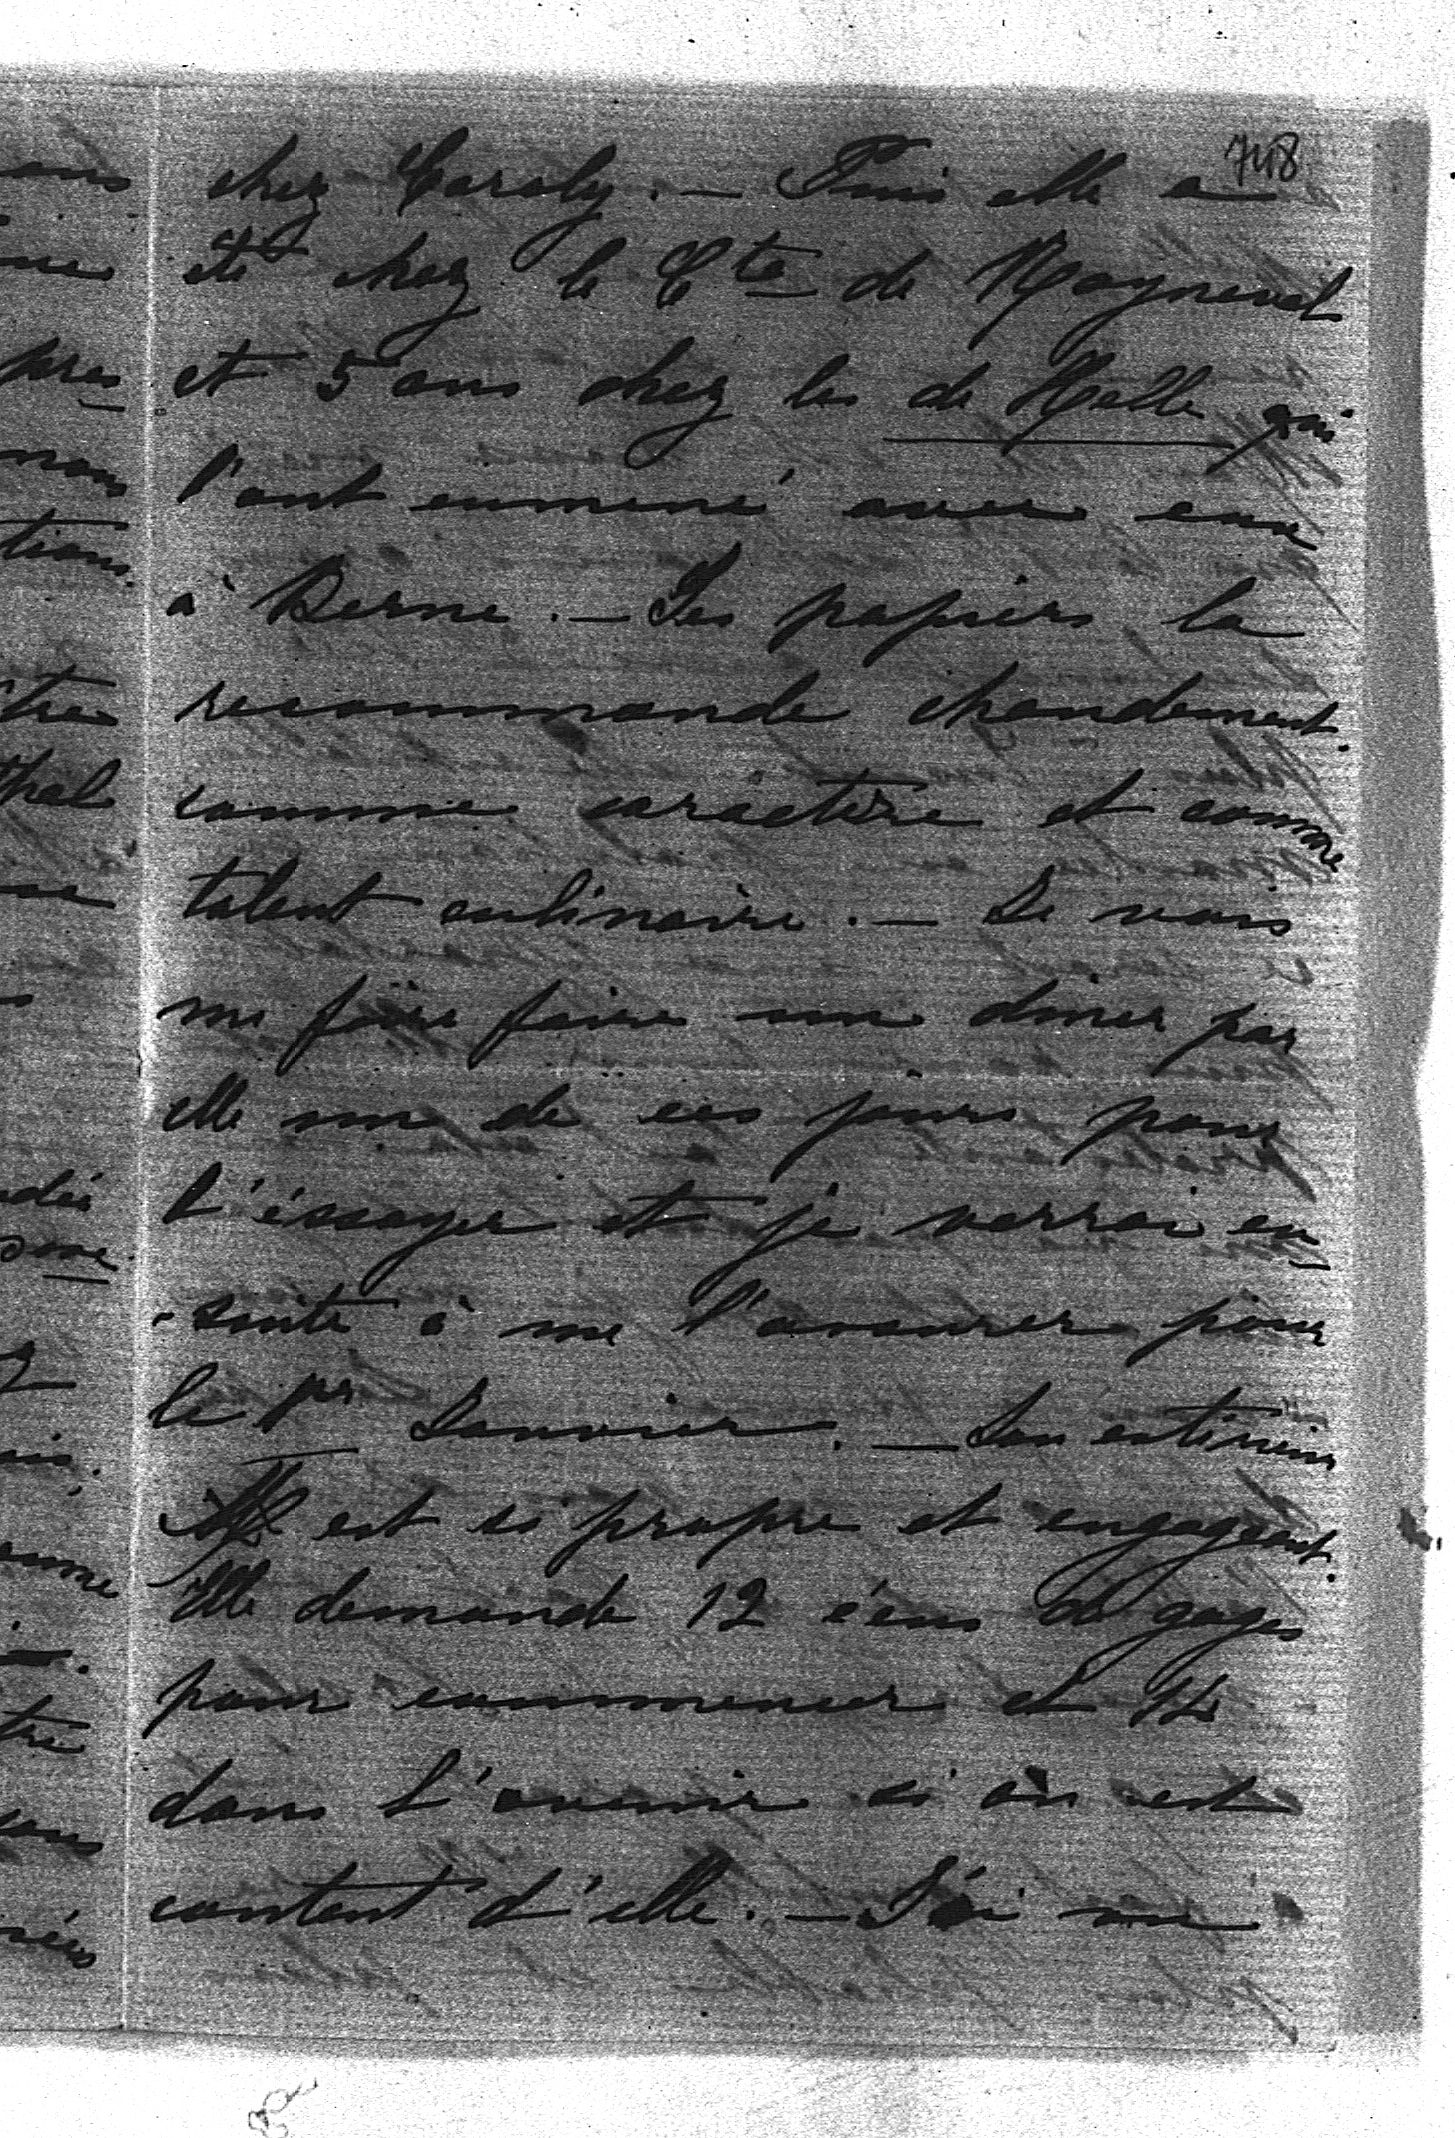 748
chez Caroly. — Puis elle a
été chez le Cte de Moyneval
et 5 ans chez les de Halle qui
l'ont emmené avec eux
à Berne. — Ses papiers la
recommande chaudement.
comme caractère et comme
talent culinaire. — Je vais
me faire faire un diner par
elle un de ces jours pour
l'éssayer et je verrai en-
-suite à me l'assurer pour
le 1er Janvier. — Son extérieur
est si propre et engageant.
Elle demande 12 écus de gages
pour commencer et 14
dans l'avenir si on est
content d'elle. — J'ai